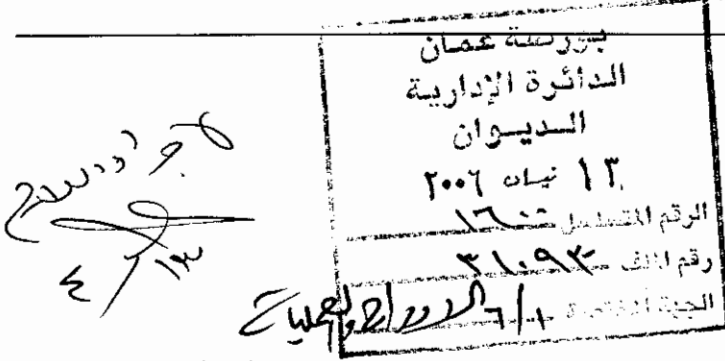 بورصة عمان
الدائرة الإدارية
الديوان
١٣ نيسان ٢٠٠٦
الرقم المتسلسل ١٦٠٠
رقم الملف ٣١٠٩٣
الجهة المختصة ٦/١ الادراج والعمليات
١٣/٤